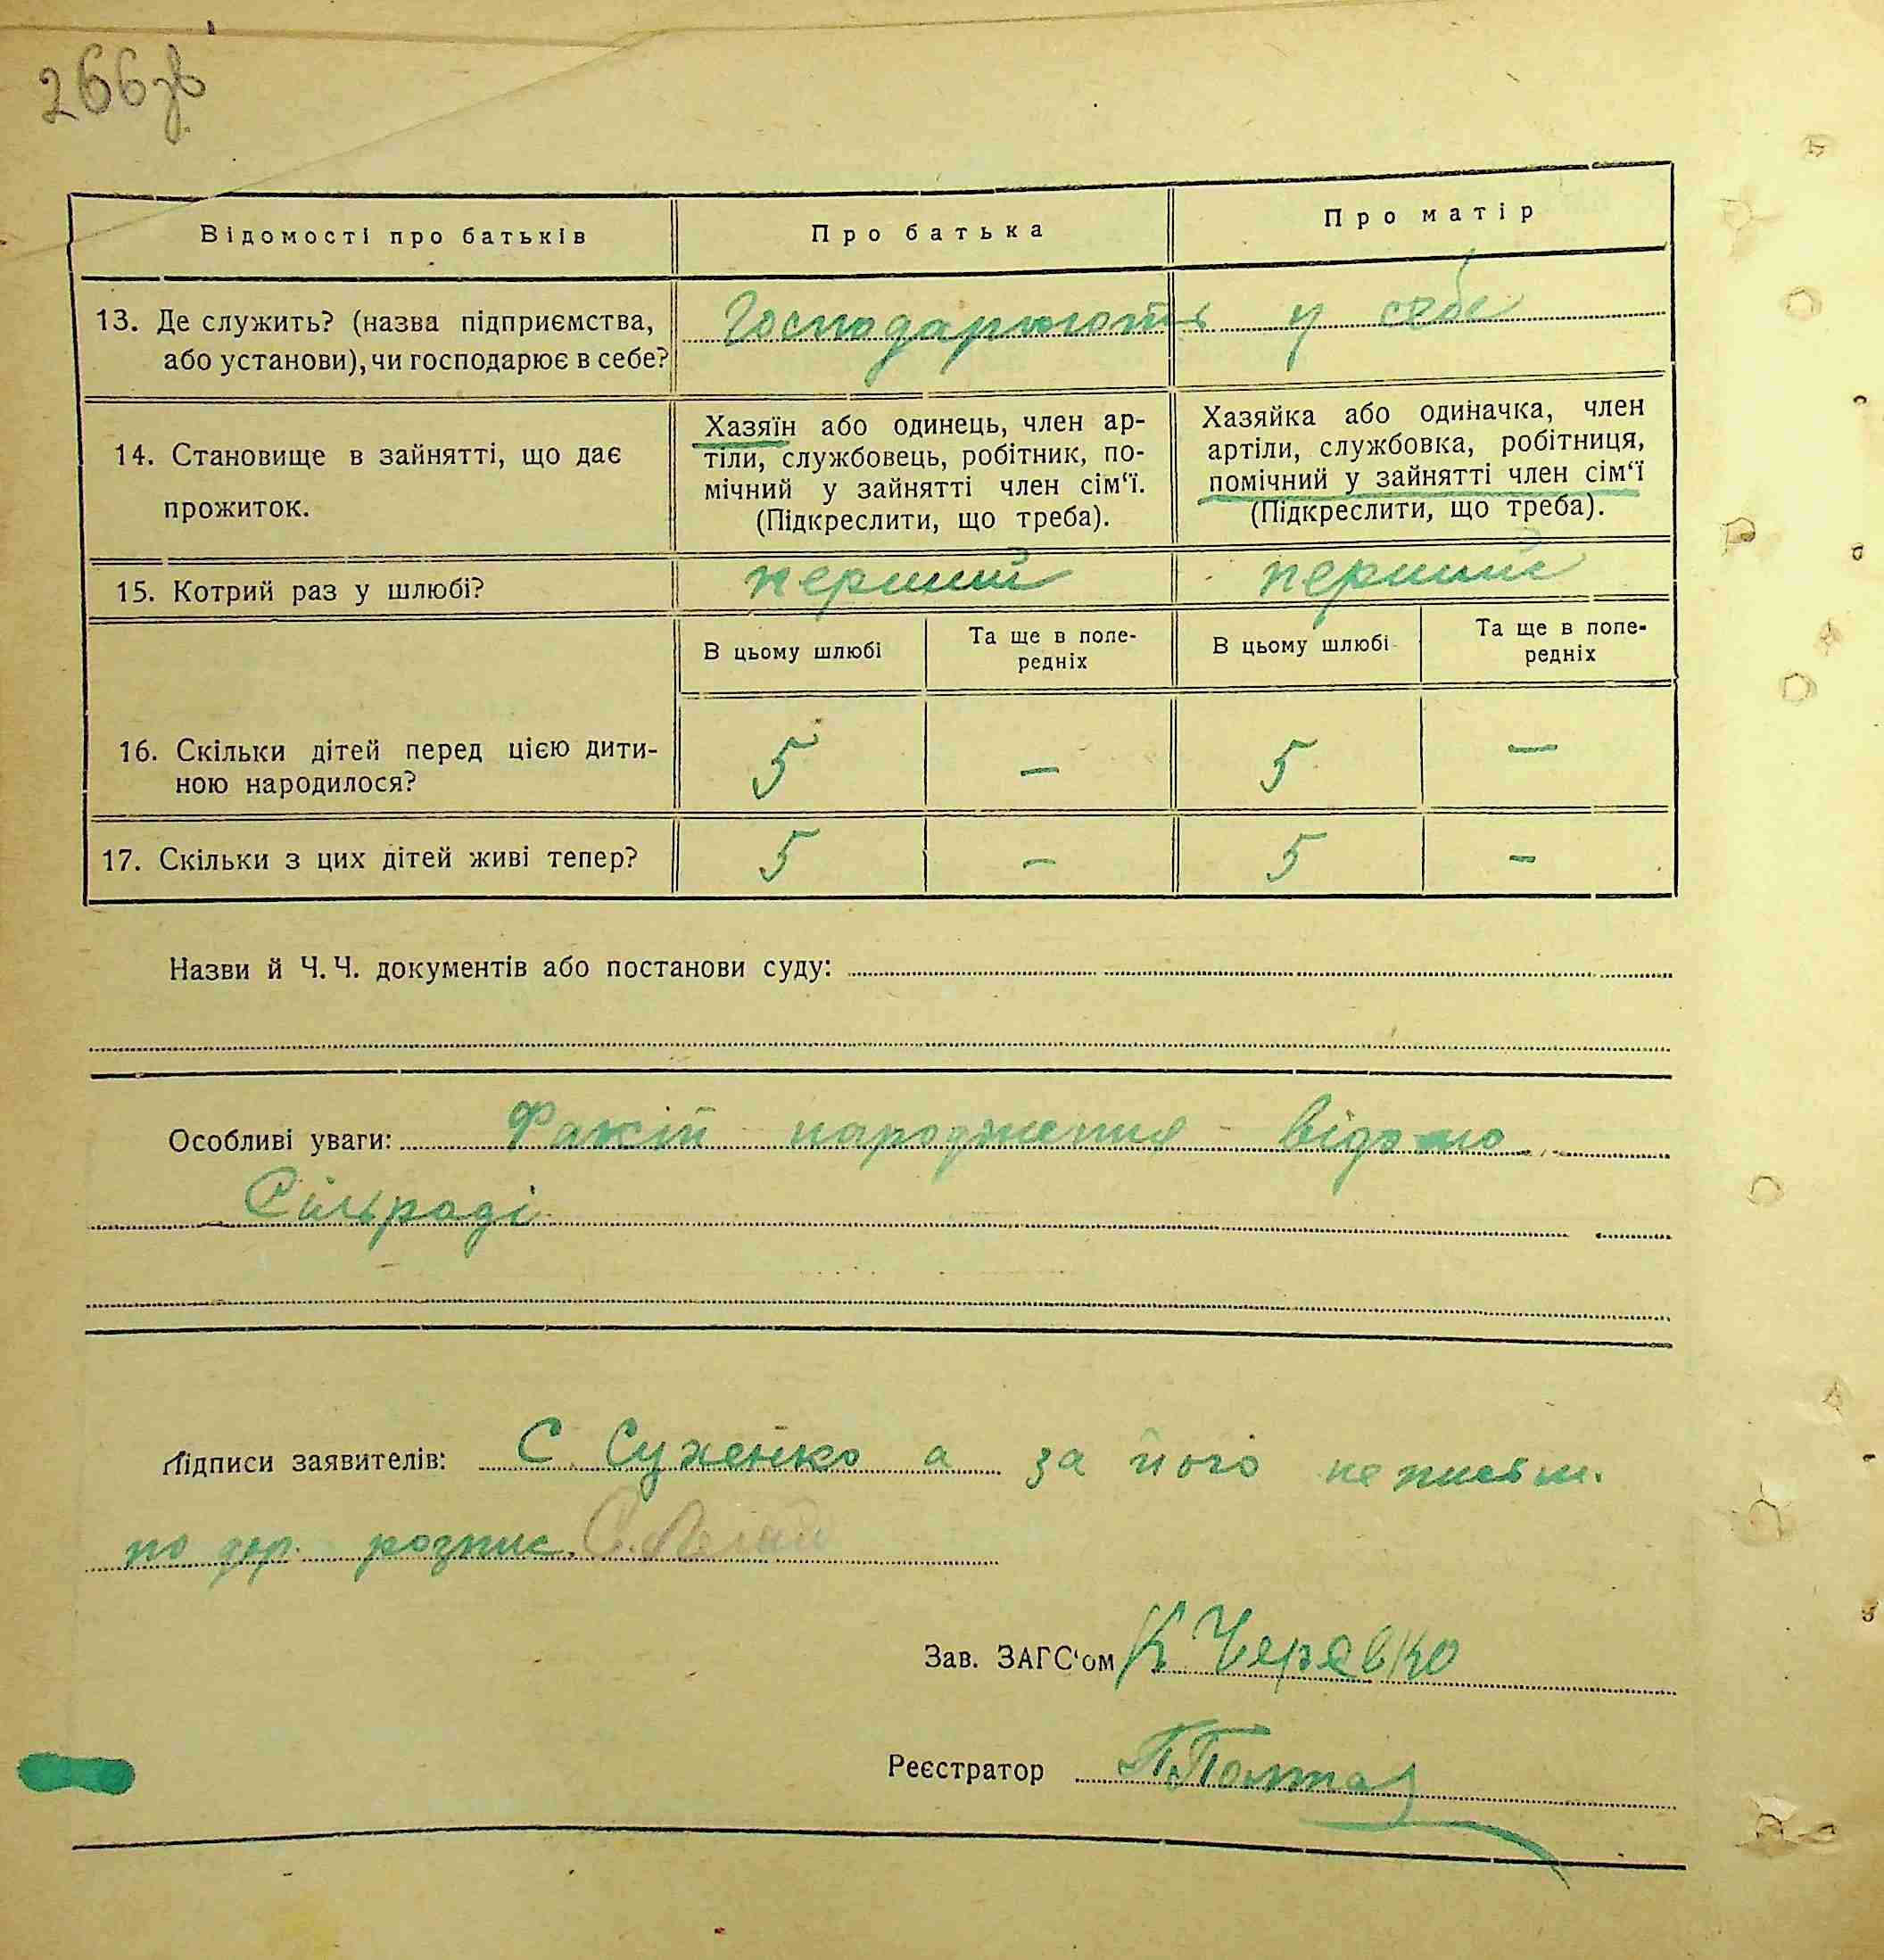 266зв
Відомості про батьків
Про батька
Про матір
13. Де служить? (назва підприємства,
або установи), чи господарює в себе?
Господарюють у себе
14. Становище в зайнятті, що дає
прожиток.
Хазяїн або одинець, член ар-
тіли, службовець, робітник, по-
мічний у зайнятті член сім‘ї.
(Підкреслити, що треба).
Хазяйка або одиначка, член
артіли, службовка, робітниця,
помічний у зайнятті член сім‘ї
(Підкреслити, що треба).
15. Котрий раз у шлюбі?
перший
перший
В цьому шлюбі
Та ще в попе-
редніх
В цьому шлюбі
Та ще в попе-
редніх
16. Скільки дітей перед цією дити-
ною народилося?
5 — 5 —
17. Скільки з цих дітей живі тепер?
5 — 5 —
Назви й Ч. Ч. документів або постанови суду:
Особливі уваги: Факт народження відомо
Сільраді
Підписи заявителів: С Сухенко а за його неписьм.
по дор. розпис.
Зав. ЗАГС‘ом К Черевко
Реєстратор